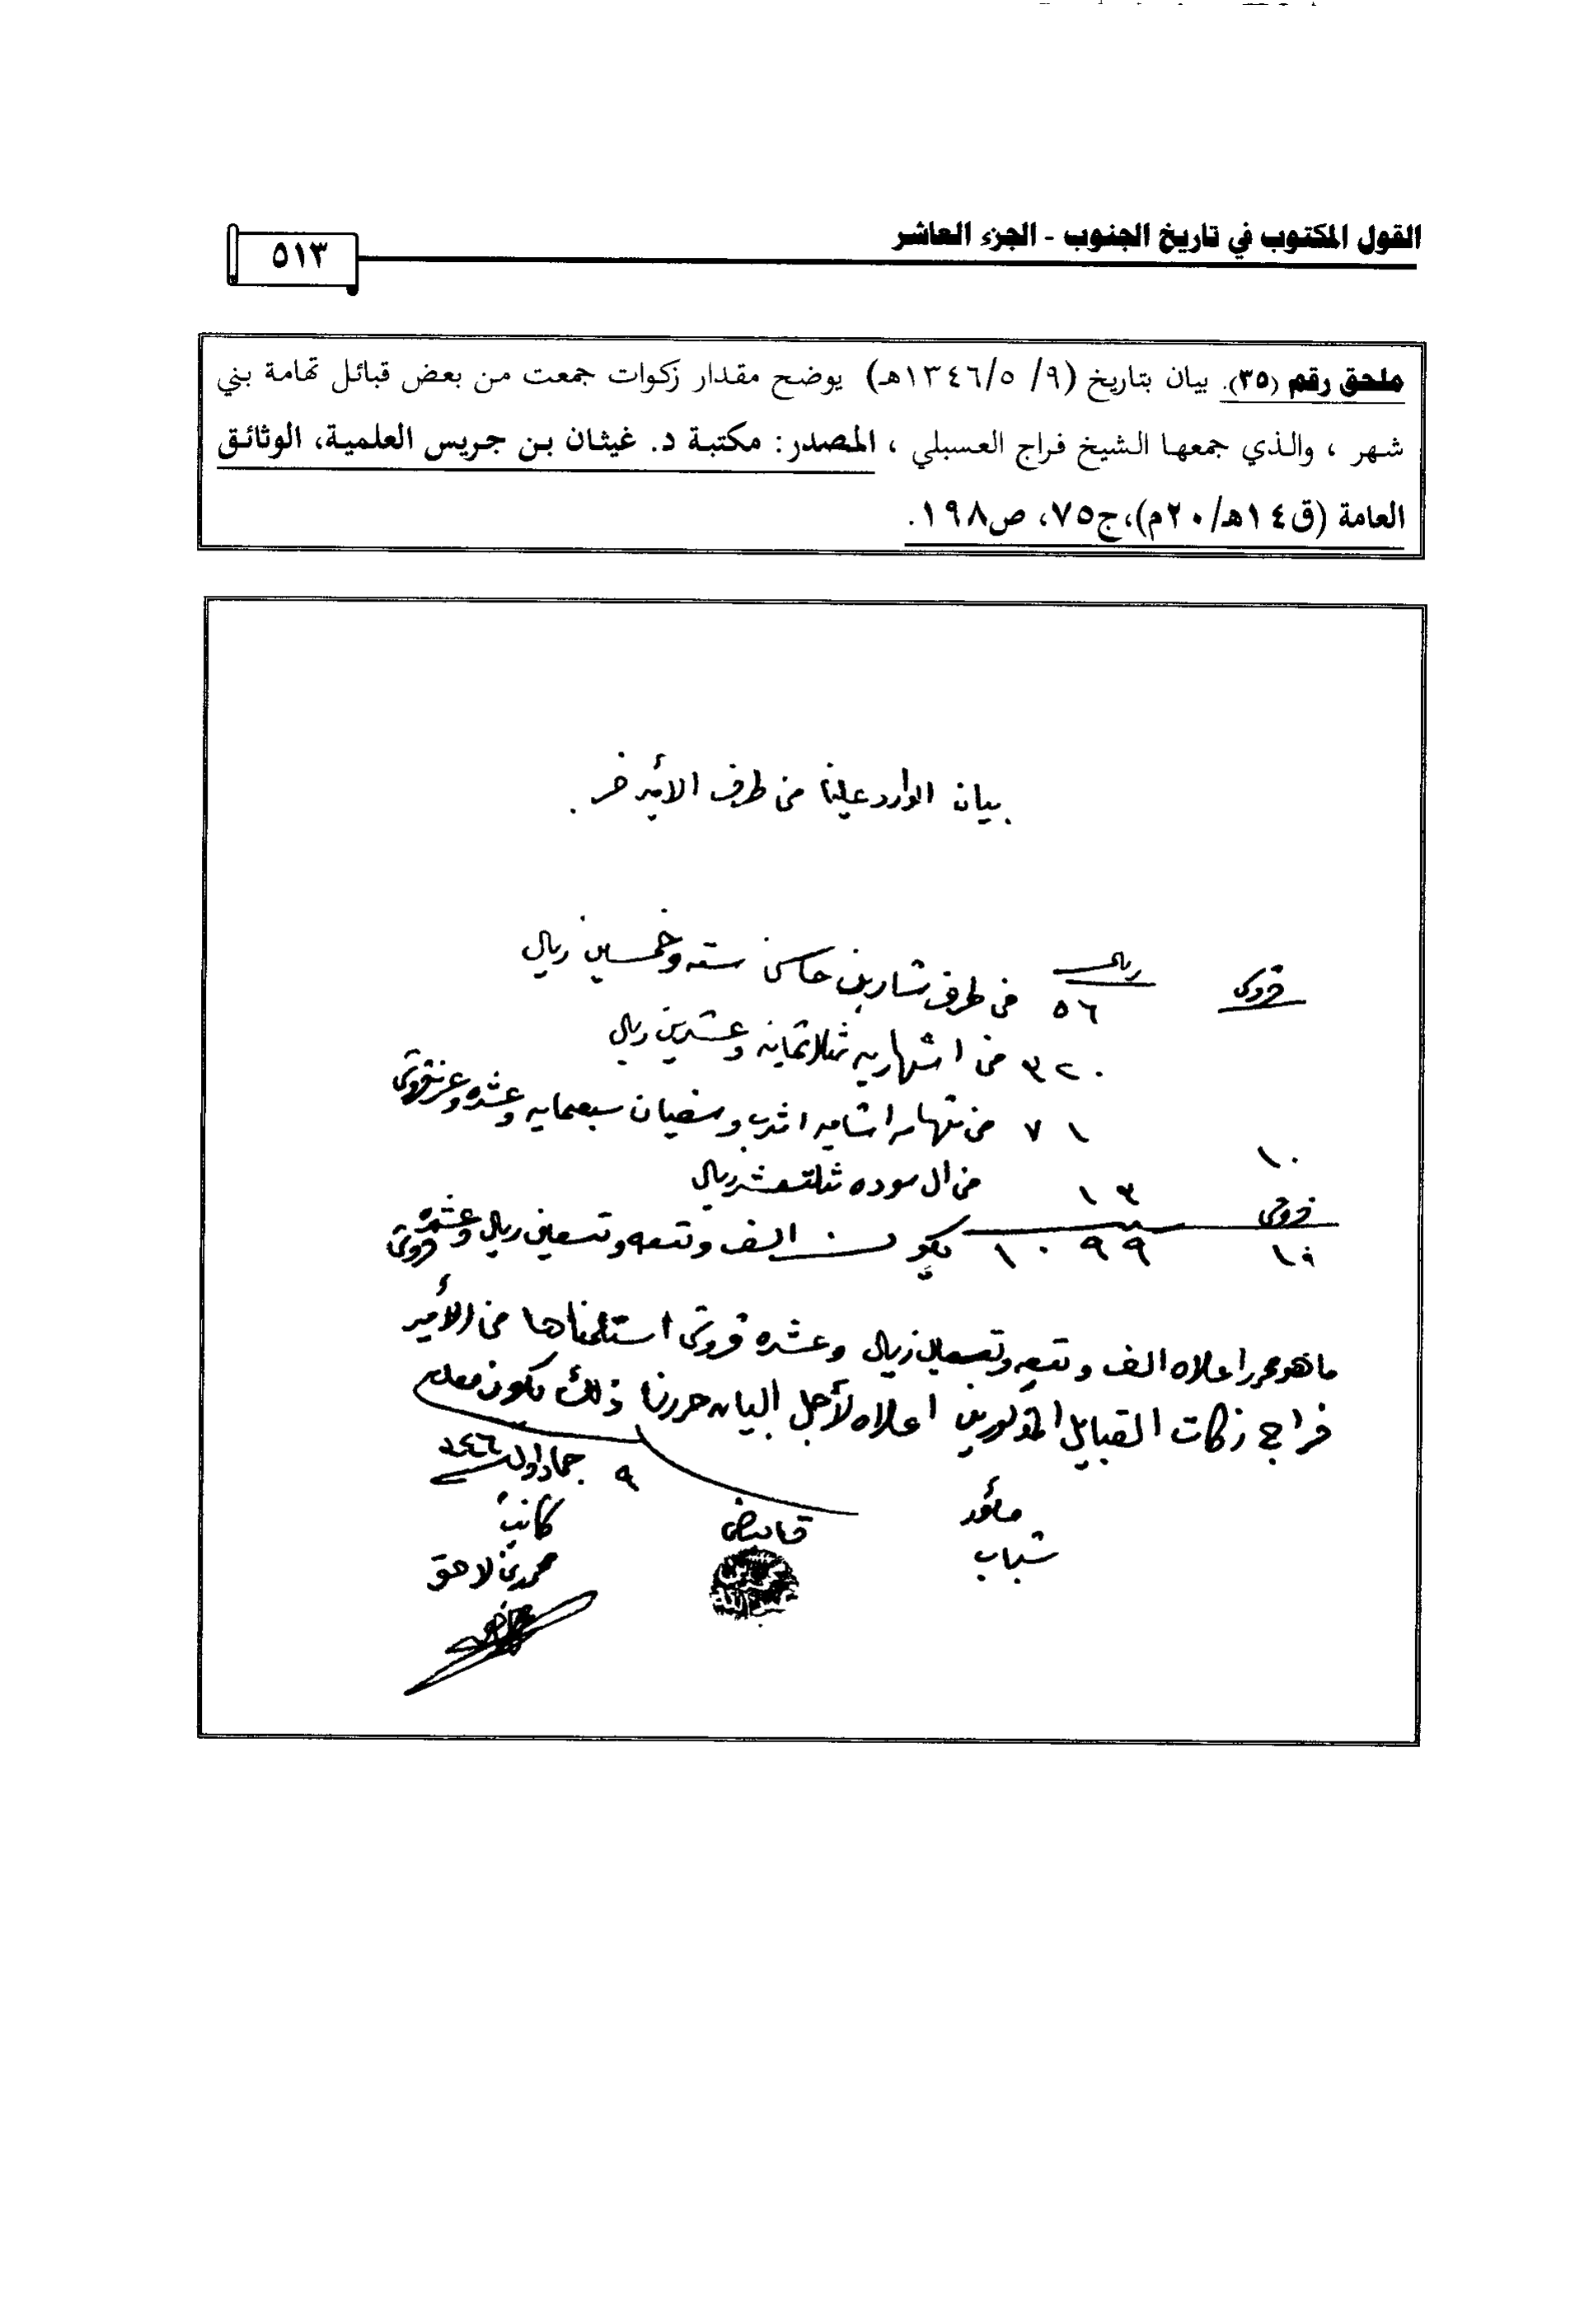 القول المكتوب في تاريخ الجنوب - الجزء العاشر
٥١٣
ملحق رقم (٣٥). بيان بتاريخ (٩/ ٥/ ١٣٤٦هـ) يوضح مقدار زكوات جمعت من بعض قبائل تهامة بني
شهر ، والذي جمعها الشيخ فراج العسبلي ، المصدر: مكتبة د. غيثان بن جريس العلمية، الوثائق
العامة (ق١٤هـ/٢٠م)، ج٧٥، ص١٩٨.
بيان الوارد علينا من طرف الأمير
قروش ريال
٥٦ من طرف سته وخمسين ريال
٣٢٠ من ثلاثمايه وعشرين ريال
٧١ من تهامه سبعمايه وعشره وعشر قروش
١٠
١٣ من ال سوده ثلثعشر ريال
قروش
١٠ ١٠٩٩ يكون الف وتسعه وتسعين ريال وعشره قروش
ما هو محرر اعلاه الف وتسعه وتسعين ريال وعشره قروش استلمناها من الأمير
فراج زكات القبايل المذكورين اعلاه لأجل البيان حررنا ذلك يكون معلوم
٩ جماد اول ٣٤٦
مأمور قابض كاتب
شباب محمد بن لاحق